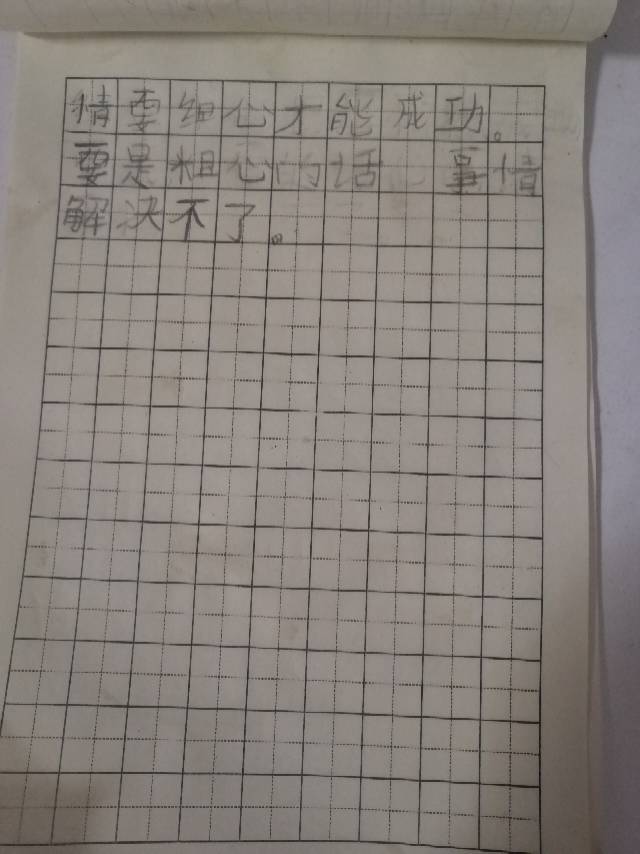 情要细心才能成功。
要是粗心的话 事情
解决不了。